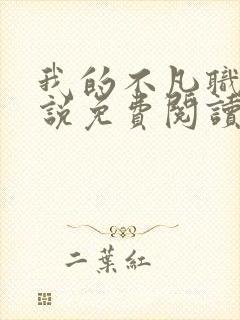 我的不凡職
說免費閱讀
二葉紅